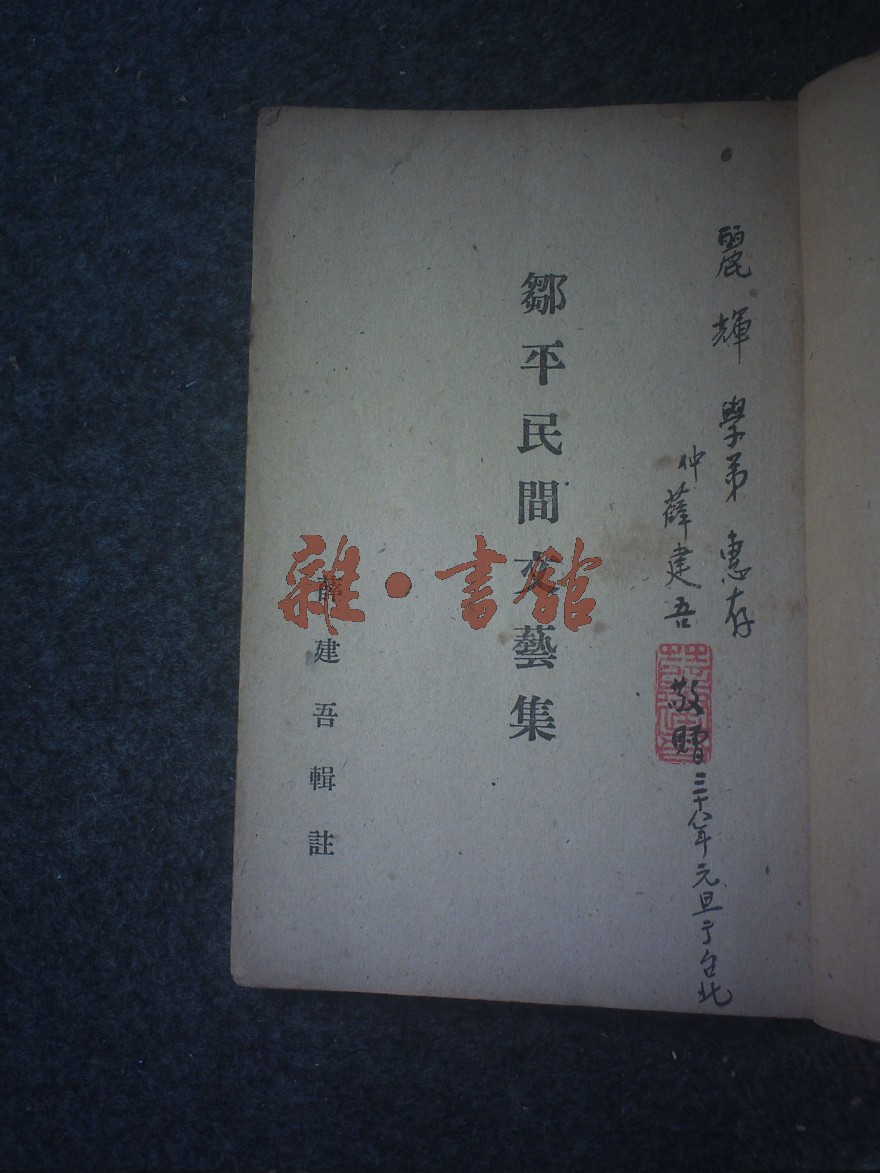 麗輝學弟惠存
仲薛建吾
敬贈
三十八年元旦于台北
鄒平民間文藝集
薛建吾輯註
雜·書館